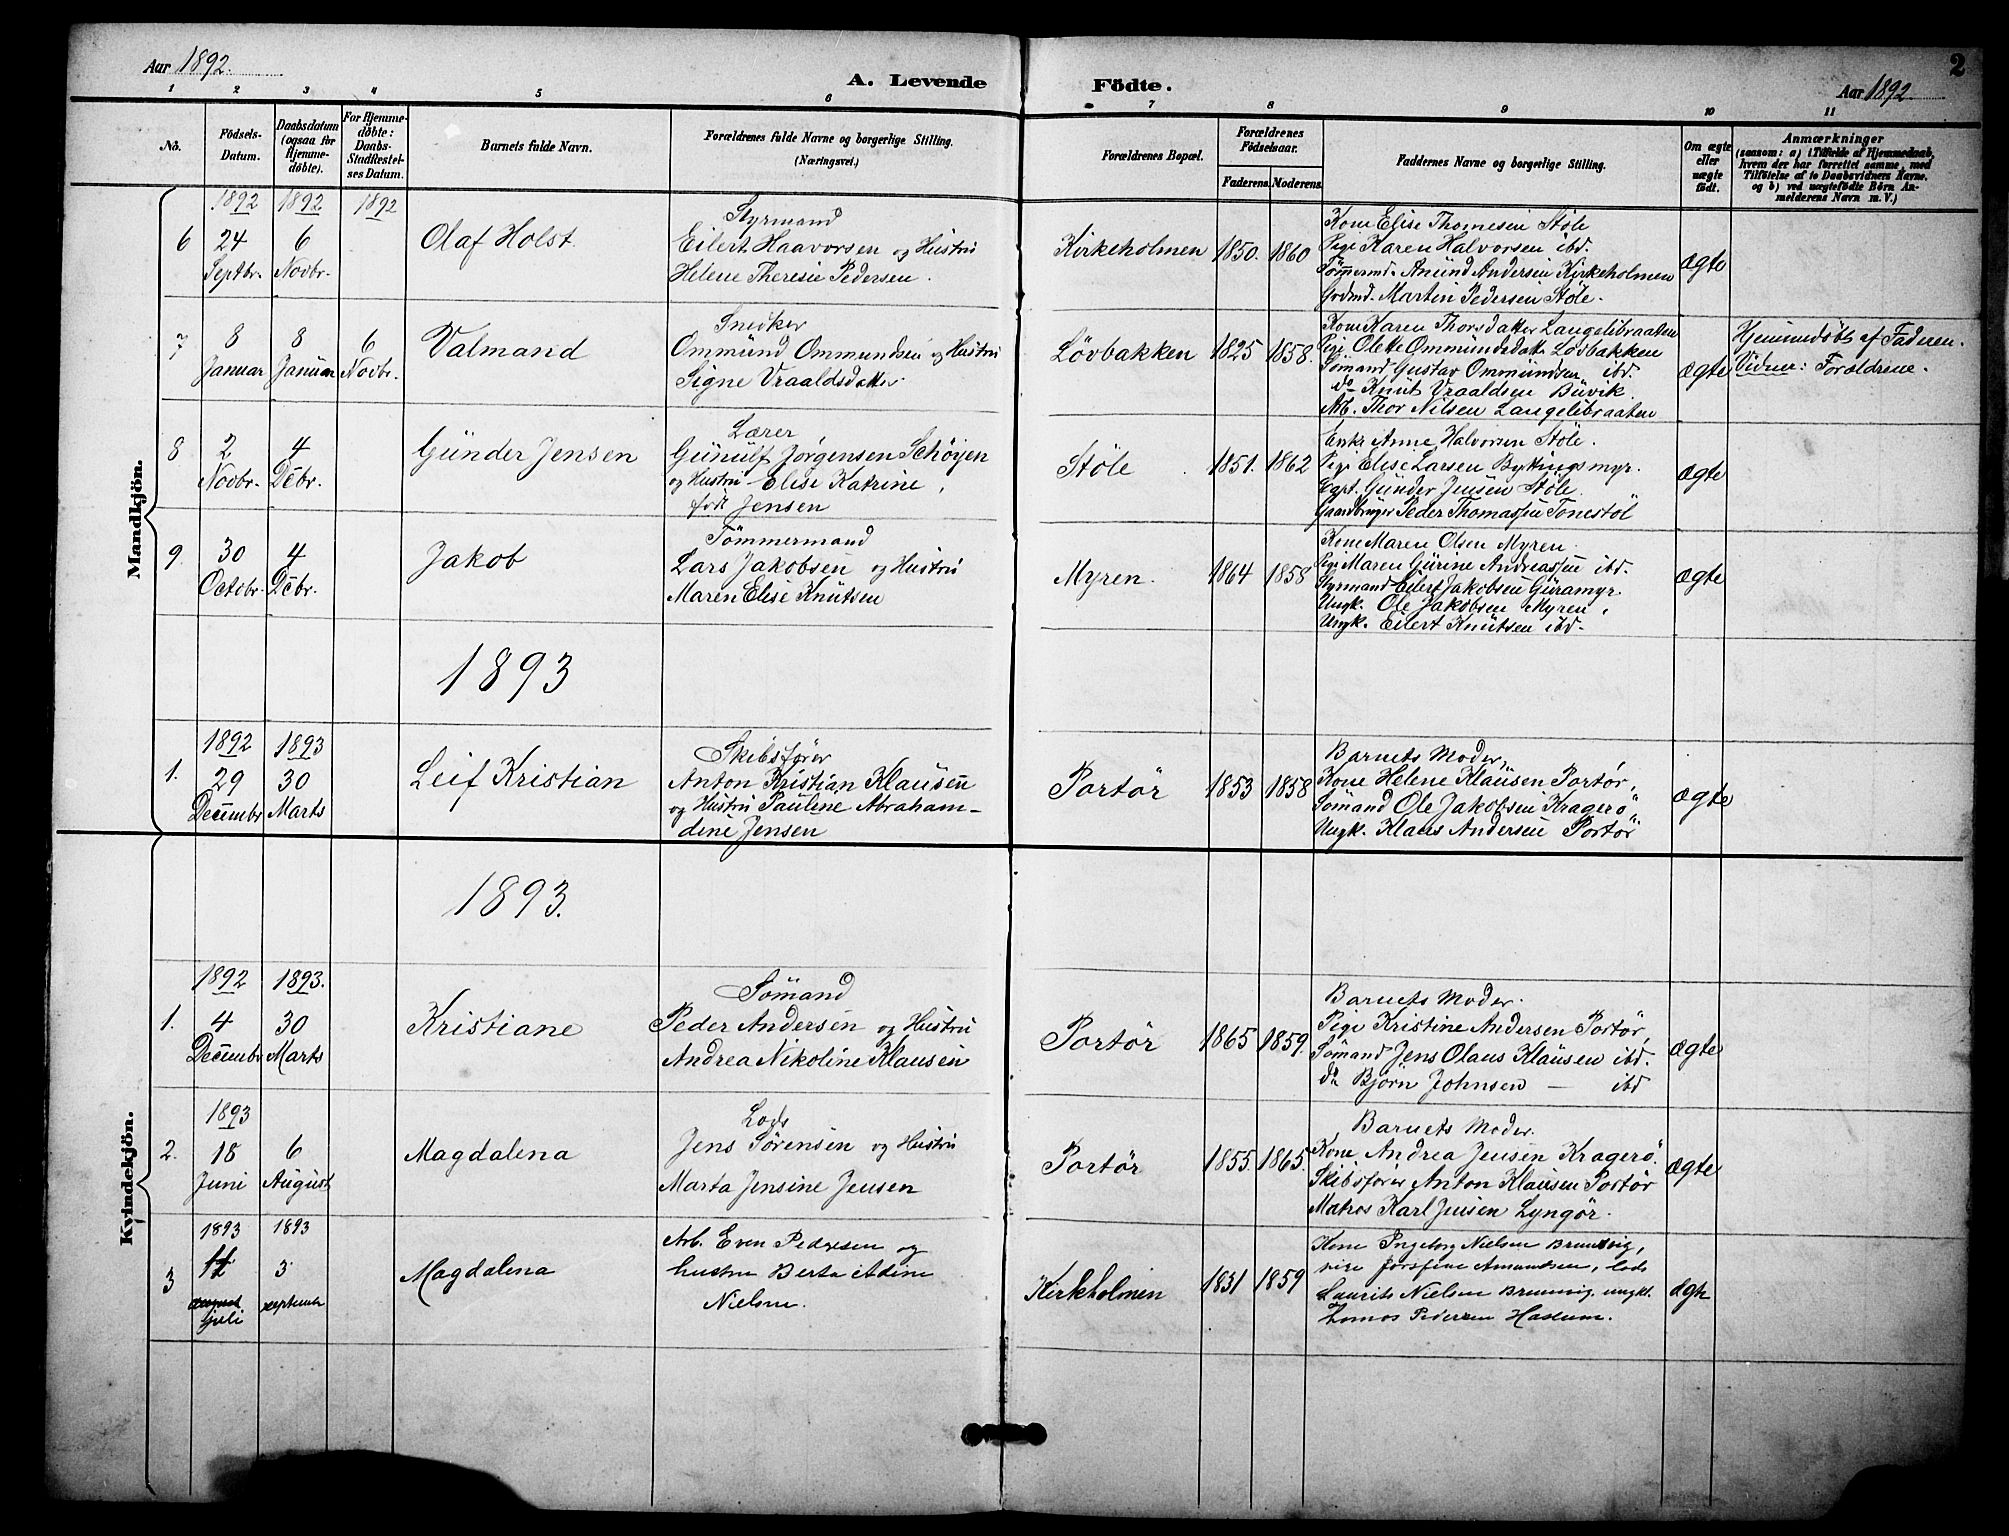 Aar 1892.
A. Levende Födte.
Aar 1892
2
1 2 3 4 5 6 7 8 9 10 11
No.
Födsels-Datum.
Daabsdatum (ogsaa for Hjemme-døbte).
For Hjemme-døbte: Daabs-Stadfæstel-ses Datum.
Barnets fulde Navn.
Forældrenes fulde Navne og borgerlige Stilling. (Næringsvei.)
Forældrenes Bopæl.
Forældrenes Födselsaar.
Faderens. Moderens.
Faddernes Navne og borgerlige Stilling.
Om ægte eller uægte födt.
Anmærkninger
(saasom: a) i Tilfælde af Hjemmedaab, hvem der har forrettet samme, med Tilföielse af to Daabsvidners Navne, og b) ved uægtefödte Börn An-melderens Navn m. V.)
Mandkjön.
1892 1892 1892
6
24 Septbr.
6 Novbr.
Olaf Holst
Styrmand
Eilert Haavorsen og Hustru
Helene Theresie Pedersen.
Kirkeholmen
1850. 1860
Kone Elise Thomesen Støle
Pige Karen Halvorsen ibd.
Tømmermd. Anund Andersen Kirkeholmen
Grdmd. Martin Pedersen Støle.
Ægte
7
8 Januar
8 Januar
6 Novbr.
Valmand
Snedker
Ommund Ommundsen og Hustru
Signe Vraaldsdatter
Løvbakken
1825 1858.
Kone Karen Thorsdatter Langelibraaten
Pige Olette Ommundsdatter Løvbakken
Sømand Gustav Ommundsen ibd.
do Knut Vraaldsen Buvik.
Arb. Thor Nilsen Langelibraaten
Ægte
Hjemmedøbt af Faderen.
Vidner: Forældrene.
8
2 Novbr.
4 Debr.
Gunder Jensen
Lærer
Gunulf Jørgensen Schøyen
og Hustru Elise Katrine,
født Jensen
Støle
1851. 1862
Enke Anne Halvorsen Støle.
Pige Elise Larsen Byttingsmyr.
Capt. Gunder Jensen Støle.
Gaardbruger Peder Thomassen Tonestöl
Ægte
9.
30 Octobr.
4 Debr.
Jakob
Tömmermand
Lars Jakobsen og Hustru
Maren Elise Knutsen
Myren.
1864 1858
Kone Maren Olsen Myren.
Pige Maren Gurine Andreassen ibd.
Styrmand Eilert Jakobsen Guramyr.
Ungk. Ole Jakobsen Myren,
Ungk. Eilert Knutsen ibd.
Ægte
1893
1892 1893
1.
29 Decembr
30 Marts
Leif Kristian
Skibsfører
Anton Kristian Klausen
og Hustru Pauline Abraham-
dine Jensen
Portör
1853 1858
Barnets Moder,
Kone Helene Klausen Portør,
Sömand Ole Jakobsen Kragerö
Ungk. Klaus Andersen Portör
Ægte
Kvindekjön.
1893.
1892 1893.
1.
4 Decembr
30 Marts
Kristiane
Sömand
Peder Andersen og Hustru
Andrea Nikoline Klausen
Portör
1865 1859.
Barnets Moder.
Pige Kristine Andersen Portör,
Sömand Jens Olaus Klausen ibd.
do Bjørn Johnsen — ibd
Ægte
1893
2.
18 Juni
6 August
Magdalena
Lods
Jens Sørensen og Hustru
Marta Jensine Jensen
Portör
1855. 1865.
Barnets Moder.
Kone Andrea Jensen Kragerö.
Skibsfører Anton Klausen Portör
Matros Karl Jensen Lyngör.
Ægte
1893 1893
3
juli
3 september
Magdalena
Arb. Even Pedersen og
hustru Berta Adine
Nielsen.
Kirkholmen
1831 1859
Kone Ingeborg Nielsen Brunsvig,
pige Josefine Amundsen, lods
Laurits Nielsen Brunsvig, ungk.
Tomas Pedersen Haslum.
Ægte